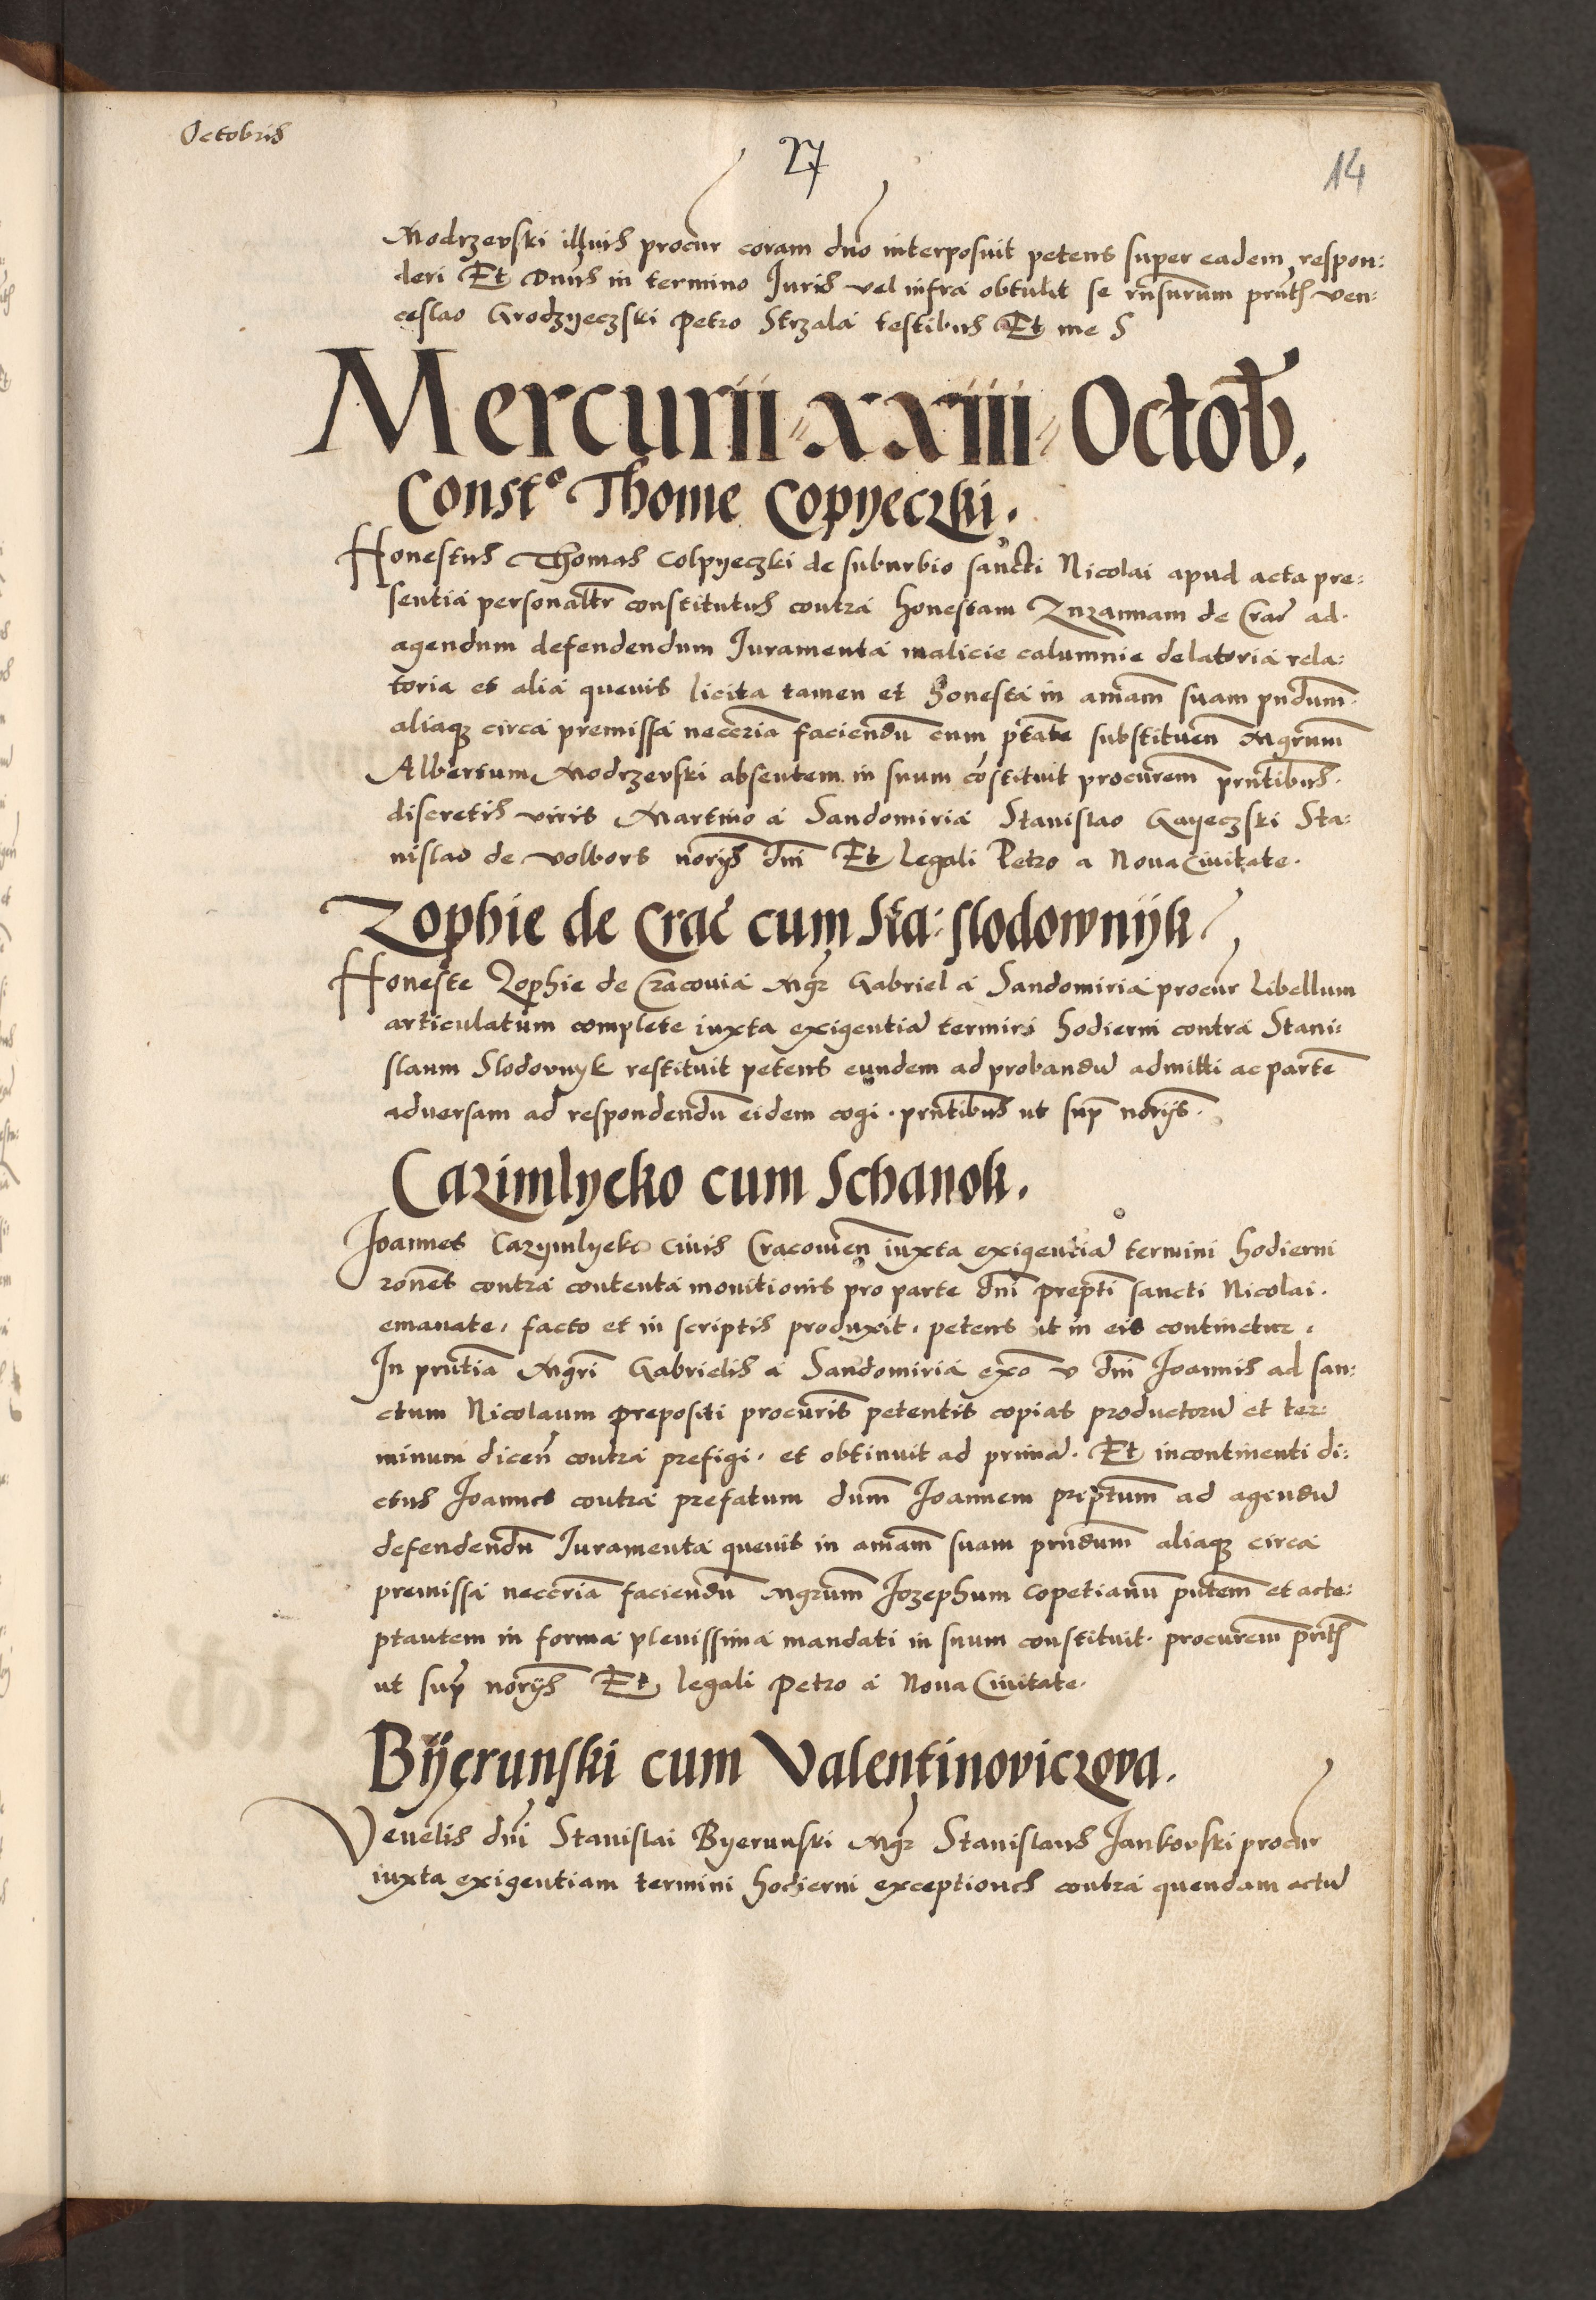 Octobris
27
14
Modrzevski illius procur coram dno interposuit petens super eadem respon:
deri Et Dnus in termino Iuris vel infra obtulit se rnsurum prntb ven:
ceslao Grodzyeczski Petro Strzala testibus Et me S
Mercurii xxiiii Octob.
Const° Thome Copyeczki.
Honestus Thomas Colpyeczki de suburbio sancti Nicolai apud acta pre:
sentia personaltr constitutus contra honestam Zuzannam de Crac ad
agendum defendendum Iuramenta malicie calumnie delatoria rela:
toria et alia quevis licita tamen et honesta in amam suam pndum
aliaq circa premissa necceria faciendu cum ptate substituen Mgrum
Albertum Modrzevski absentem in suum costituit procurem prntibus.
discretis viris Martino a Sandomiria Stanislao Gayeczski Sta:
nislao de Volbors norijs dni Et Legali Petro a Nova Civitate.
Zophie de Crac cum Sta: slodownijk
Honeste Zophie de Cracovia Mgr Gabriel a Sandomiria procur Libellum
articulatum complete iuxta exigentia termini hodierni contra Stani:
slaum Slodovnyk restituit petens eundem ad probandu admitti ac parte
adversam ad respondendu eidem cogi. prntibus ut sup norijs.
Cazimlycko cum Schanok.
Joannes Cazymlycko civis Cracovien iuxta exigentia termini hodierni
ronens contra contenta monitionis pro parte dni prepti sancti Nicolai.
emanate. facto et in scriptis produxit. petens ut in eis continetur.
In prntia Mgri Gabrielis a Sandomiria exo v dni Joannis ad san:
ctum Nicolaum prepositi procuris petentis copias productoru et ter:
minum dicen contra prefigi. et obtinuit ad prima. Et incontinenti di:
ctus Joannes contra prefatum dum Joannem preptum ad agendu
defendendu Iuramenta quevis in amam suam prndum aliaq circa
premissa necceria faciendu Mgrum Jozephum Copetianu pntem et acce:
ptantem in forma plenissima mandati in suum constituit. procurem prntb
ut sup norijs Et legali Petro a Nova Civitate.
Bijerunski cum Valentinoviczova.
Venelis dni Stanislai Byerunski Mgr Stanislaus Jankovski procur
iuxta exigentiam termini hodierni exceptiones contra quendam actu